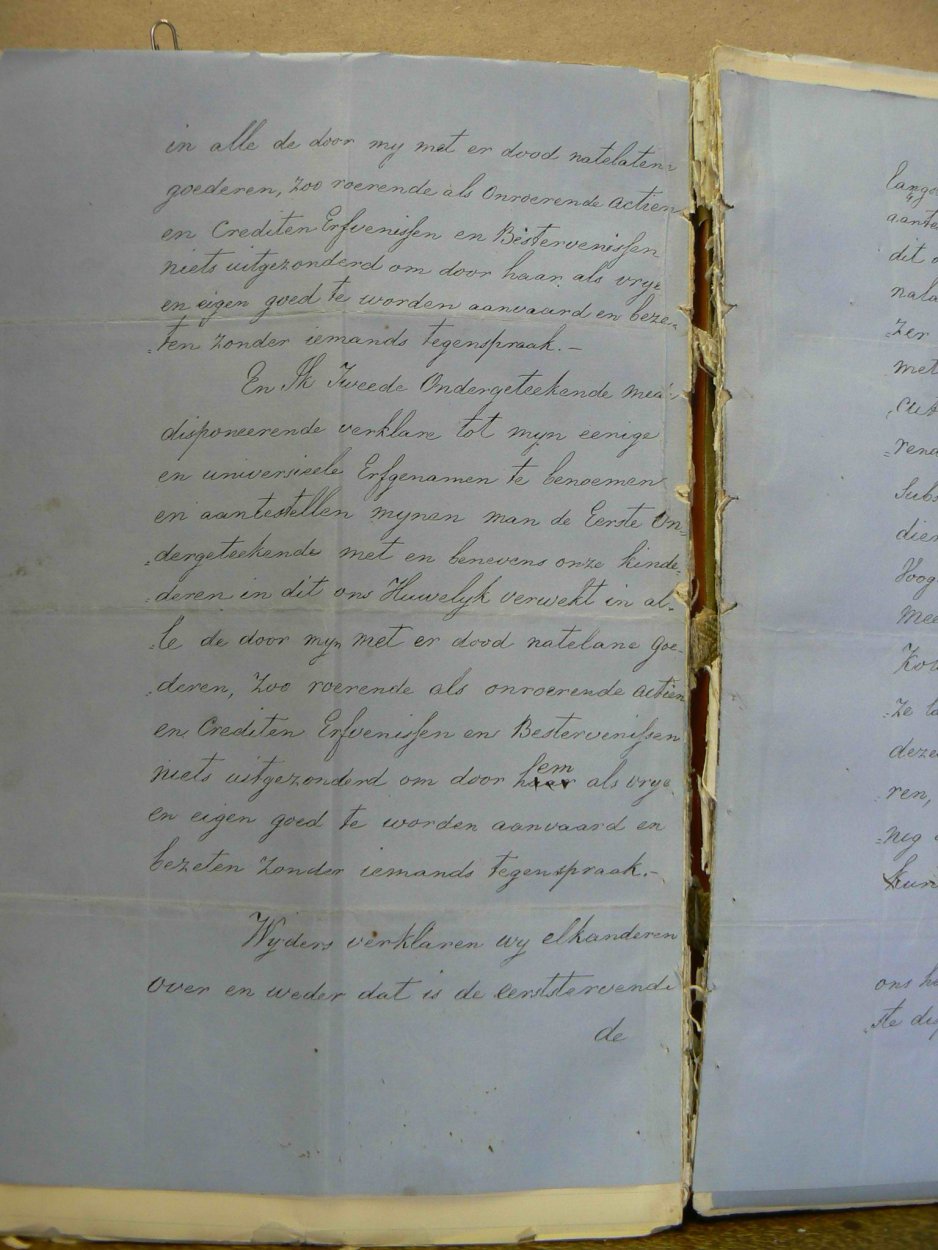 in alle de door my met er dood natelaten=
goederen, zoo roerende als onroerende actien
en Crediten Erfvenissen en Bestervenissen
niets uitgezonderd om door haar als vrye
en eigen goed te worden aanvaard en beze=
=ten zonder iemands tegenspraak.–
En Ik Tweede Ondergeteekende mea
disponeerende verklare tot myn eenige
en universieele Erfgenamen te benoemen
en aantestellen mynen man de Eerste On
=dergeteekende met en benevens onze kinde=
=deren in dit ons Huwelyk verwekt in al=
=le de door myn met er dood natelane goe=
=deren, zoo roerende als onroerende actien
en Crediten Erfvenissen en Bestervenissen
niets uitgezonderd om door hem als vrye
en eigen goed te worden aanvaard en
bezeten zonder iemands tegenspraak.–
Wyders verklaren wy elkanderen
over en weder dat is de eerststervende
de
aante
dit
nala
zer
met
=rend
Subs
dien
Voog
mee
=ze
deze
ren,
=nig
kun
ons ha
ste